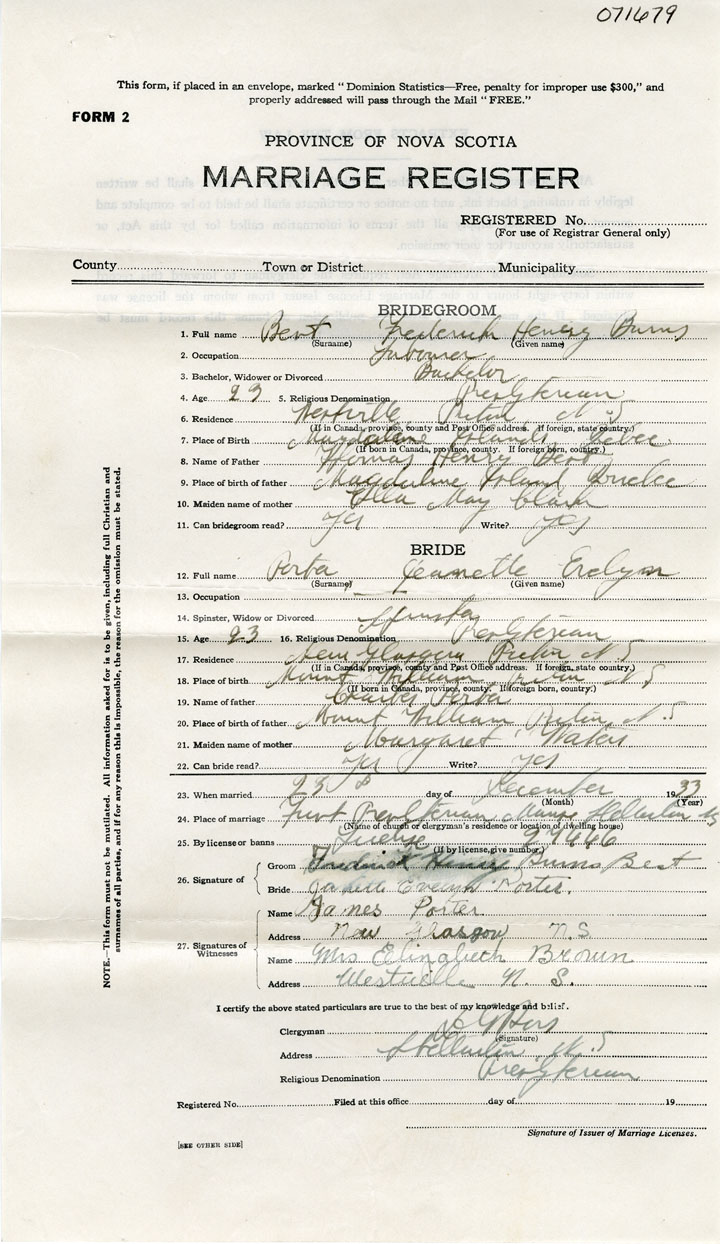 071679
This form, if placed in an envelope, marked "Dominion Statistics—Free, penalty for improper use $300," and
properly addressed will pass through the Mail "FREE."
FORM 2
PROVINCE OF NOVA SCOTIA
MARRIAGE REGISTER
REGISTERED No.
(For use of Registrar General only)
County Town or District Municipality
BRIDEGROOM
1. Full name Bent Frederick Henry Burns
(Surname) (Given name)
2. Occupation Labourer
3. Bachelor, Widower or Divorced Bachelor
4. Age 23 5. Religious Denomination Presbyterian
6. Residence Westville Pictou N S
(If in Canada, province, county and Post Office address. If foreign, state country.)
7. Place of Birth Magdalene Islands Quebec
(If born in Canada, province, county. If foreign born, country.)
8. Name of Father Thomas Henry Bent
9. Place of birth of father Magdaline Island Quebec
10. Maiden name of mother Ella May Clark
11. Can bridegroom read? Yes Write? Yes
BRIDE
12. Full name Porter Jeanette Evelyn
(Surname) (Given name)
13. Occupation —
14. Spinster, Widow or Divorced Spinster
15. Age 23 16. Religious Denomination Presbyterian
17. Residence New Glasgow Pictou N S
(If in Canada, province, county and Post Office address. If foreign, state country.)
18. Place of birth Mount William Pictou N S
(If born in Canada, province, county. If foreign born, country.)
19. Name of father Charles Porter
20. Place of birth of father Mount William Pictou, N.S
21. Maiden name of mother Margaret Waters
22. Can bride read? Yes Write? Yes
23. When married 23 d day of December 1933
(Month) (Year)
24. Place of marriage First Presbyterian Manse Stellarton NS
(Name of church or clergyman's residence or location of dwelling house)
25. By license or banns License
(If by license, give number)
26. Signature of { Groom Frederick Henry Burns Bent
Bride Janette Evelyn Porter.
27. Signatures of Witnesses { Name James Porter
Address New Glasgow N.S.
Name Mrs Elizabeth Brown
Address Westville N. S.
I certify the above stated particulars are true to the best of my knowledge and belief.
Clergyman
(Signature)
Address Stellarton N.S
Religious Denomination Presbyterian
Registered No. Filed at this office day of 19
Signature of Issuer of Marriage Licenses.
[SEE OTHER SIDE]
NOTE.—This form must not be mutilated. All information asked for is to be given, including full Christian and
surnames of all parties, and if for any reason this is impossible, the reason for the omission must be stated.